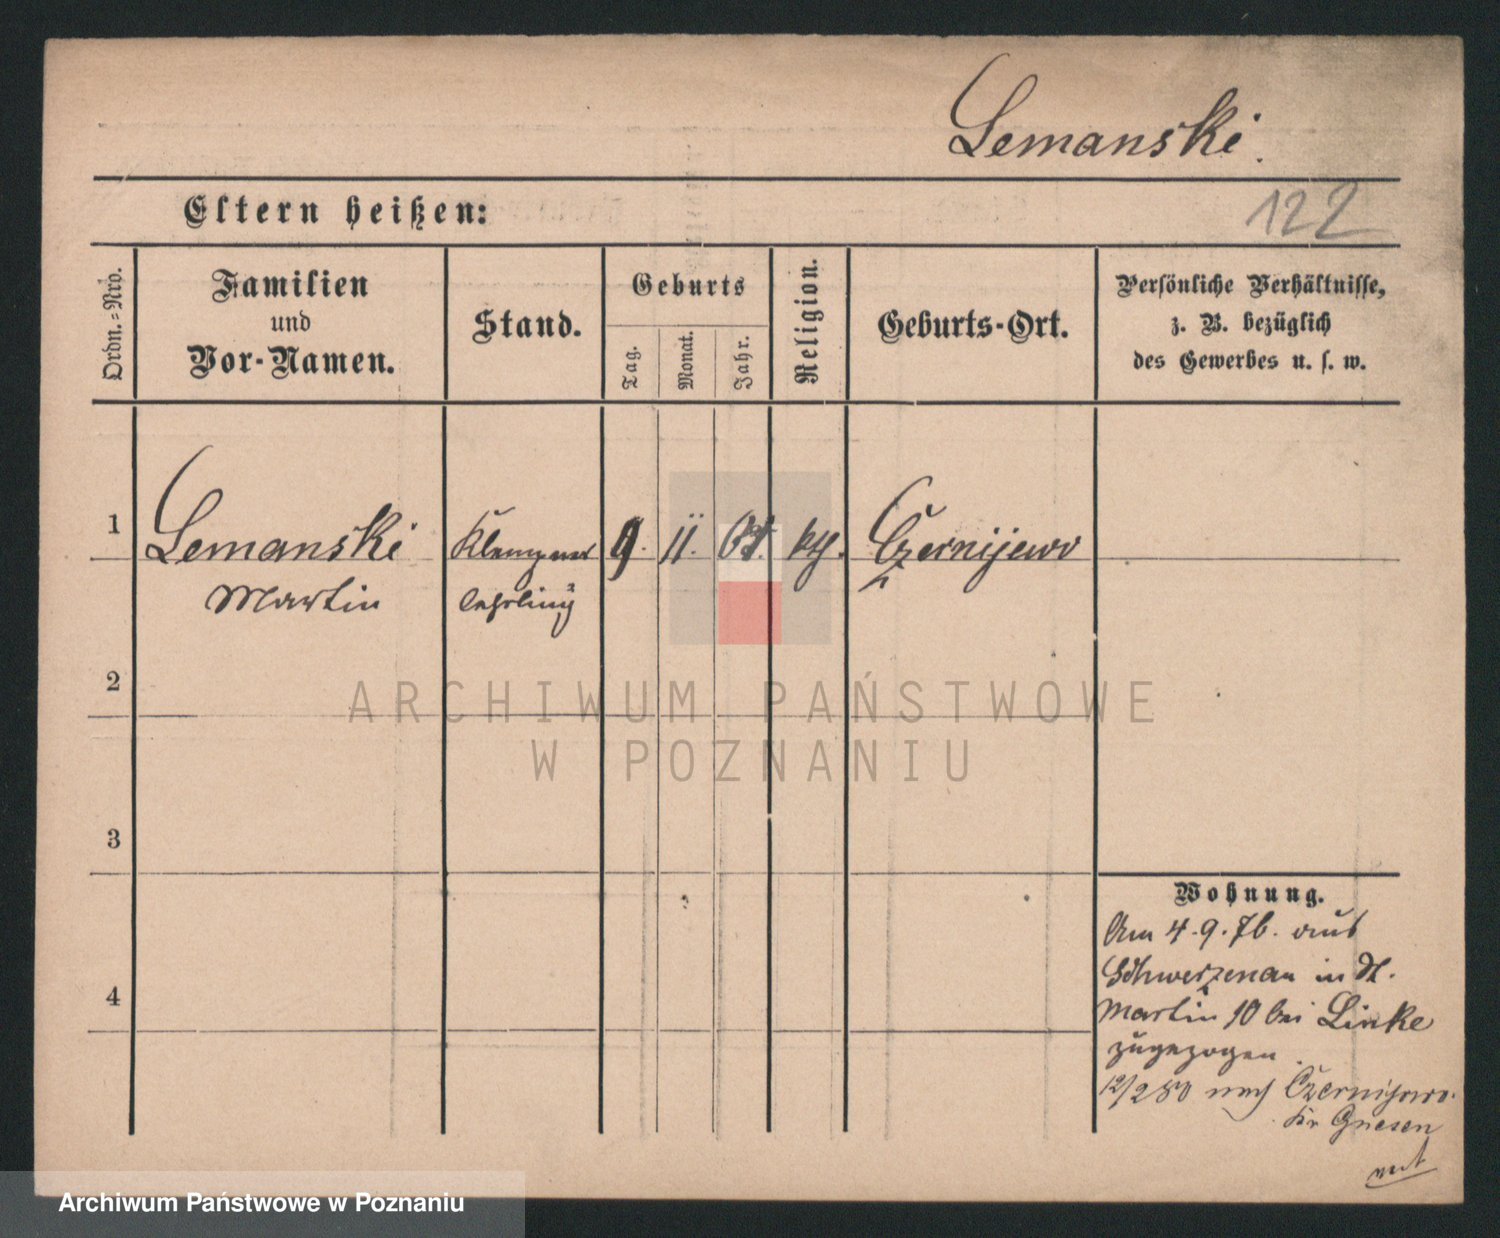 Lemanski.
122
Eltern heißen:
Ordn.=Nro.
Familien
und
Vor-Namen.
Stand.
Geburts
Tag.
Monat.
Jahr.
Religion.
Geburts-Ort.
Persönliche Verhältnisse,
z. B. bezüglich
des Gewerbes u. s. w.
1
Lemanski
Martin
Klempner
lehrling
9.
11.
Czernijewo
2
ARCHIWUM PAŃSTWOWE
W POZNANIU
3
4
Wohnung.
Am 4.9.76. aus
Schwerzenau in St.
Martin 10 bei Linke
zugezogen.
12/2 80 nach Czernijewo.
Kr Gnesen
Archiwum Państwowe w Poznaniu